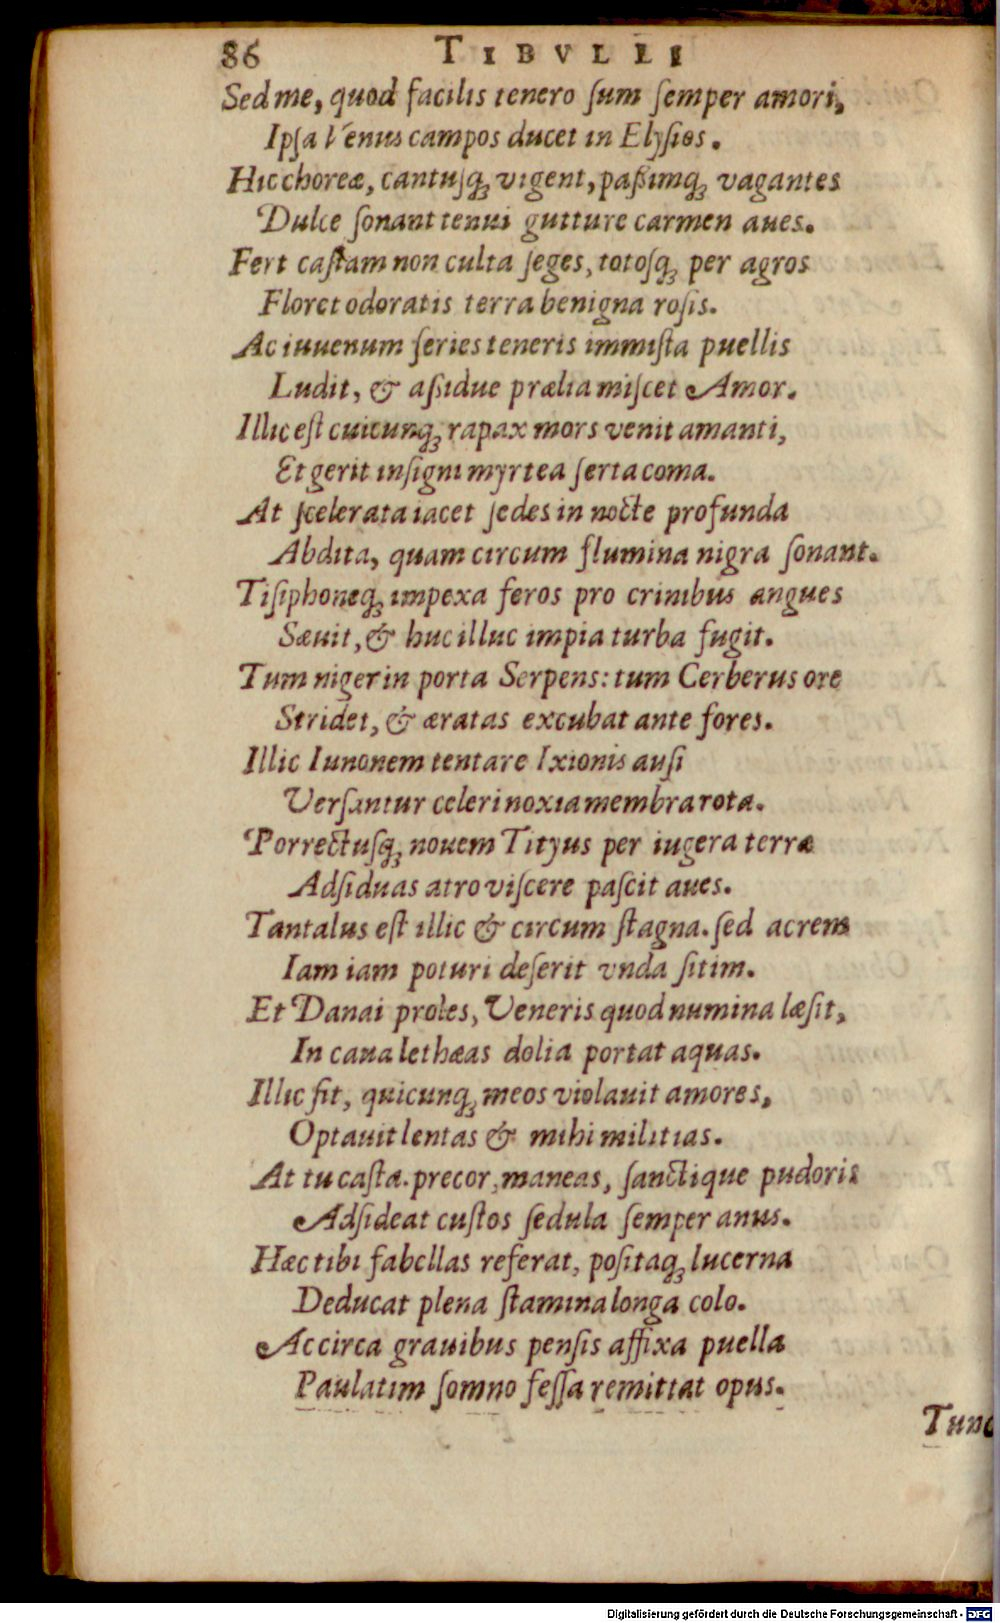 86 TIBVLLI
Sed me, quod facilis tenero ſum ſemper amori,
Ipſa Venus campos ducet in Elyſios.
Hic choreæ, cantuſq́; vigent, paßimq́; vagantes
Dulce ſonant tenui gutture carmen aues.
Fert caſtam non culta ſeges, totoſq́; per agros
Floret odoratis terra benigna roſis.
Ac iuuenum ſeries teneris immiſta puellis
Ludit, & aßidue prælia miſcet Amor.
Illic eſt cuicunq́; rapax mors venit amanti,
Et gerit inſigni myrtea ſerta coma.
At ſcelerata iacet ſedes in nocte profunda
Abdita, quam circum flumina nigra ſonant.
Tiſiphoneq́; impexa feros pro crinibus angues
Sæuit, & huc illuc impia turba fugit.
Tum niger in porta Serpens: tum Cerberus ore
Stridet, & æratas excubat ante fores.
Illic Iunonem tentare Ixionis auſi
Verſantur celeri noxia membra rota.
Porrectuſq́; nouem Tityus per iugera terræ
Adſiduas atro viſcere paſcit aues.
Tantalus eſt illic & circum ſtagna. ſed acrem
Iam iam poturi deſerit vnda ſitim.
Et Danai proles, Veneris quod numina læſit,
In caua lethæas dolia portat aquas.
Illic ſit, quicunq́; meos violauit amores,
Optauit lentas & mihi militias.
At tu caſta. precor, maneas, ſanctique pudoris
Adſideat cuſtos ſedula ſemper anus.
Hæc tibi fabellas referat, poſitaq́; lucerna
Deducat plena ſtamina longa colo.
Ac circa grauibus penſis affixa puella
Paulatim ſomno feſſa remittat opus.
Tunc
Digitalisierung gefördert durch die Deutsche Forschungsgemeinschaft - DFG